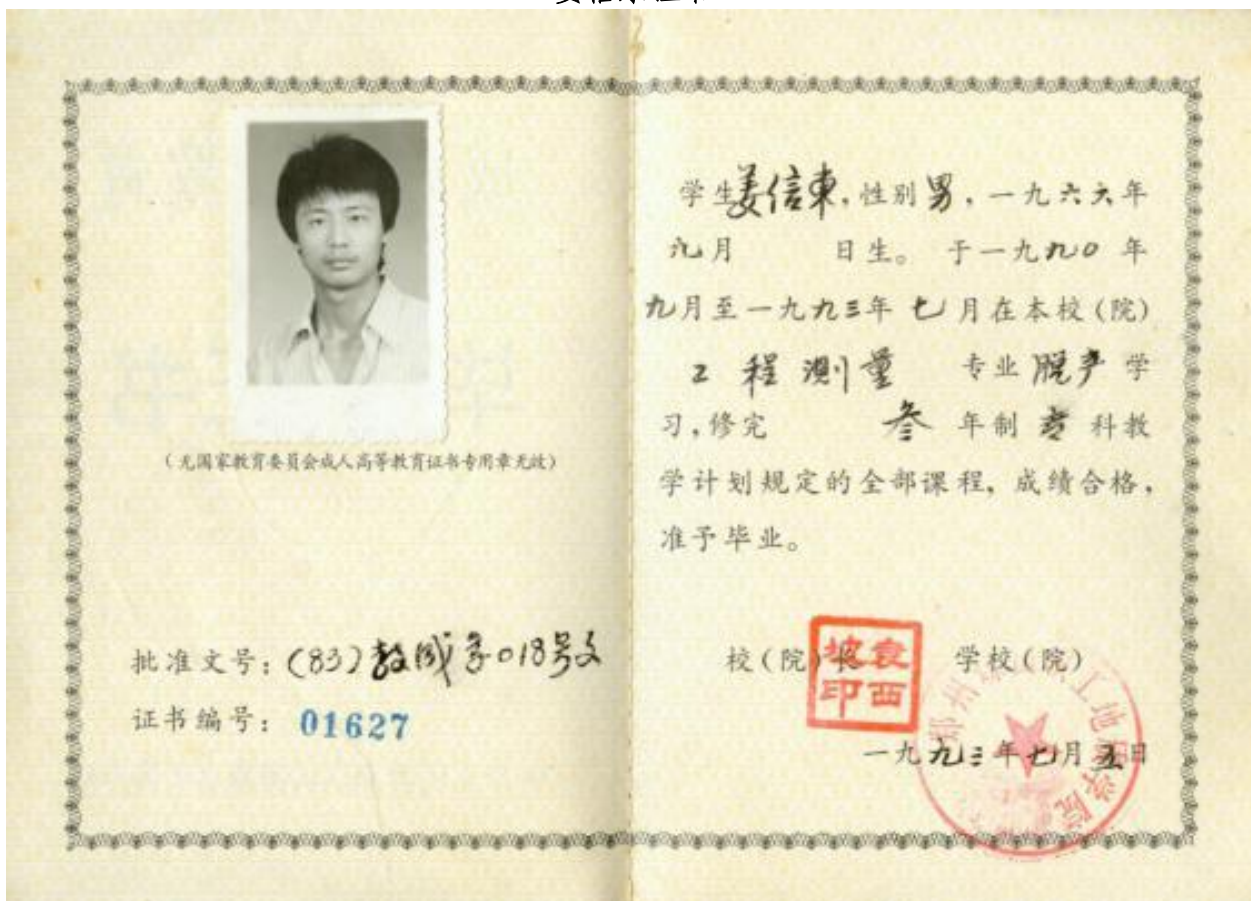 (无国家教育委员会成人高等教育证书专用章无效)
批准文号：(83)教成字018号文
证书编号： 01627
学生姜信東，性别男，一九六六年
九月 日生。于一九九0年
九月至一九九三年七月在本校(院)
工程测量 专业脱产学
习，修完 叁年制专科教
学计划规定的全部课程，成绩合格，
准予毕业。
校(院)长 学校(院)
袁西坡印
一九九三年七月五日